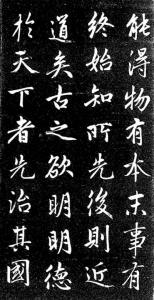 能得物有本末事有
終始知所先後則近
道矣古之欲明明德
於天下者先治其國